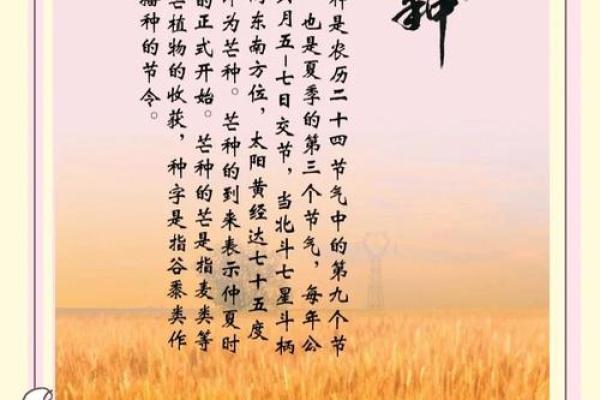 种
种是农历二十四节气中的第九个节
，也是夏季的第三个节气，每年公
六月五-七日交节，当北斗七星斗柄
向东南方位，太阳黄经达七十五度
即为芒种。芒种的到来表示仲夏时
的正式开始。芒种的芒是指麦类等
芒植物的收获，种字是指谷黍类作
播种的节令。